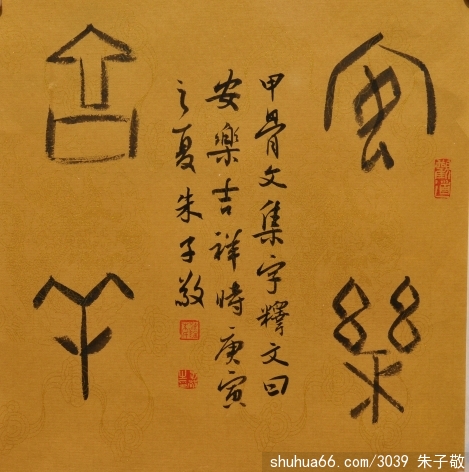 安樂
吉羊
甲骨文集字釋文曰
安樂吉祥時庚寅
之夏朱子敬
shuhua66.com/3039 朱子敬